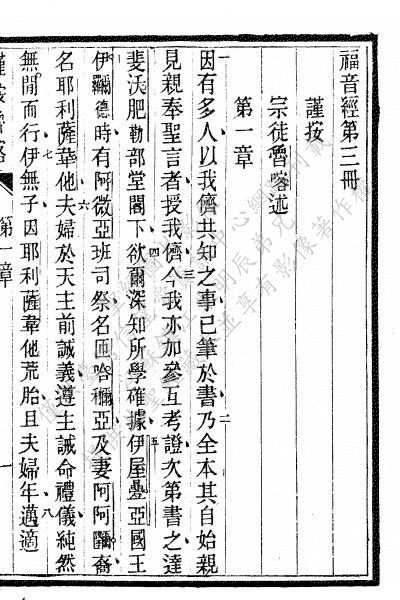 福音經第三冊
謹按
宗徒魯喀述
第一章
因有多人以我儕共知之事已筆於書乃全本其自始親
見親奉聖言者授我儕今我亦加參互考證次第書之達
斐沃肥勒部堂閣下欲爾深知所學確據伊屋疊亞國王
伊爾德時有阿微亞班司祭名匝哈爾亞及妻阿阿爾裔
名耶利薩韋他夫婦於天主前誠義遵主誡命禮儀純然
無間而行伊無子因耶利薩韋他荒胎且夫婦年邁適
第一章
一
一
二
三
四
五
六
七
八